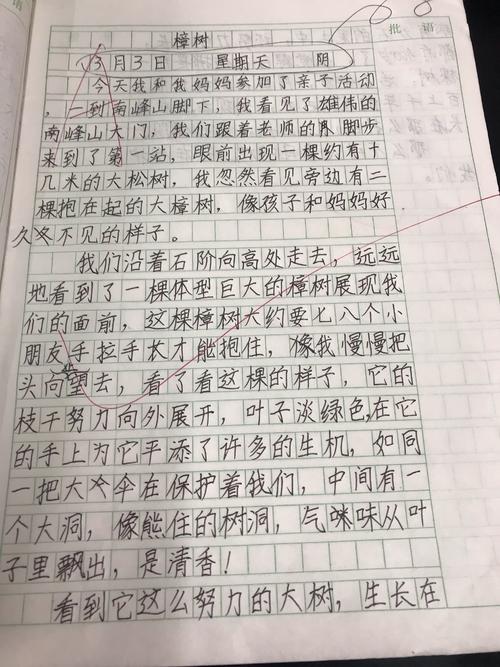 批语
樟树
3月3日 星期天 阴
今天我和我妈妈参加了亲子活动
,一到南峰山脚下,我看见了雄伟的
南峰山大门,我们跟着老师的脚步
来到了第一站,眼前出现一棵约有十
几米的大松树,我忽然看见旁边有二
棵抱在起的大樟树,像孩子和妈妈好
久冬不见的样子。
我们沿着石阶向高处走去,远远
地看到了一棵体型巨大的樟树展现我
们的面前,这棵樟树大约要七八个小
朋友手拉手长才能抱住,像我慢慢把
头向望去,看了看这棵的样子,它的
枝干努力向外展开,叶子淡绿色,在它
的手上为它平添了许多的生机,如同
一把大伞在保护着我们,中间有一
个大洞,像熊住的树洞,气味从叶
子里飘出,是清香!
看到它这么努力的大树,生长在